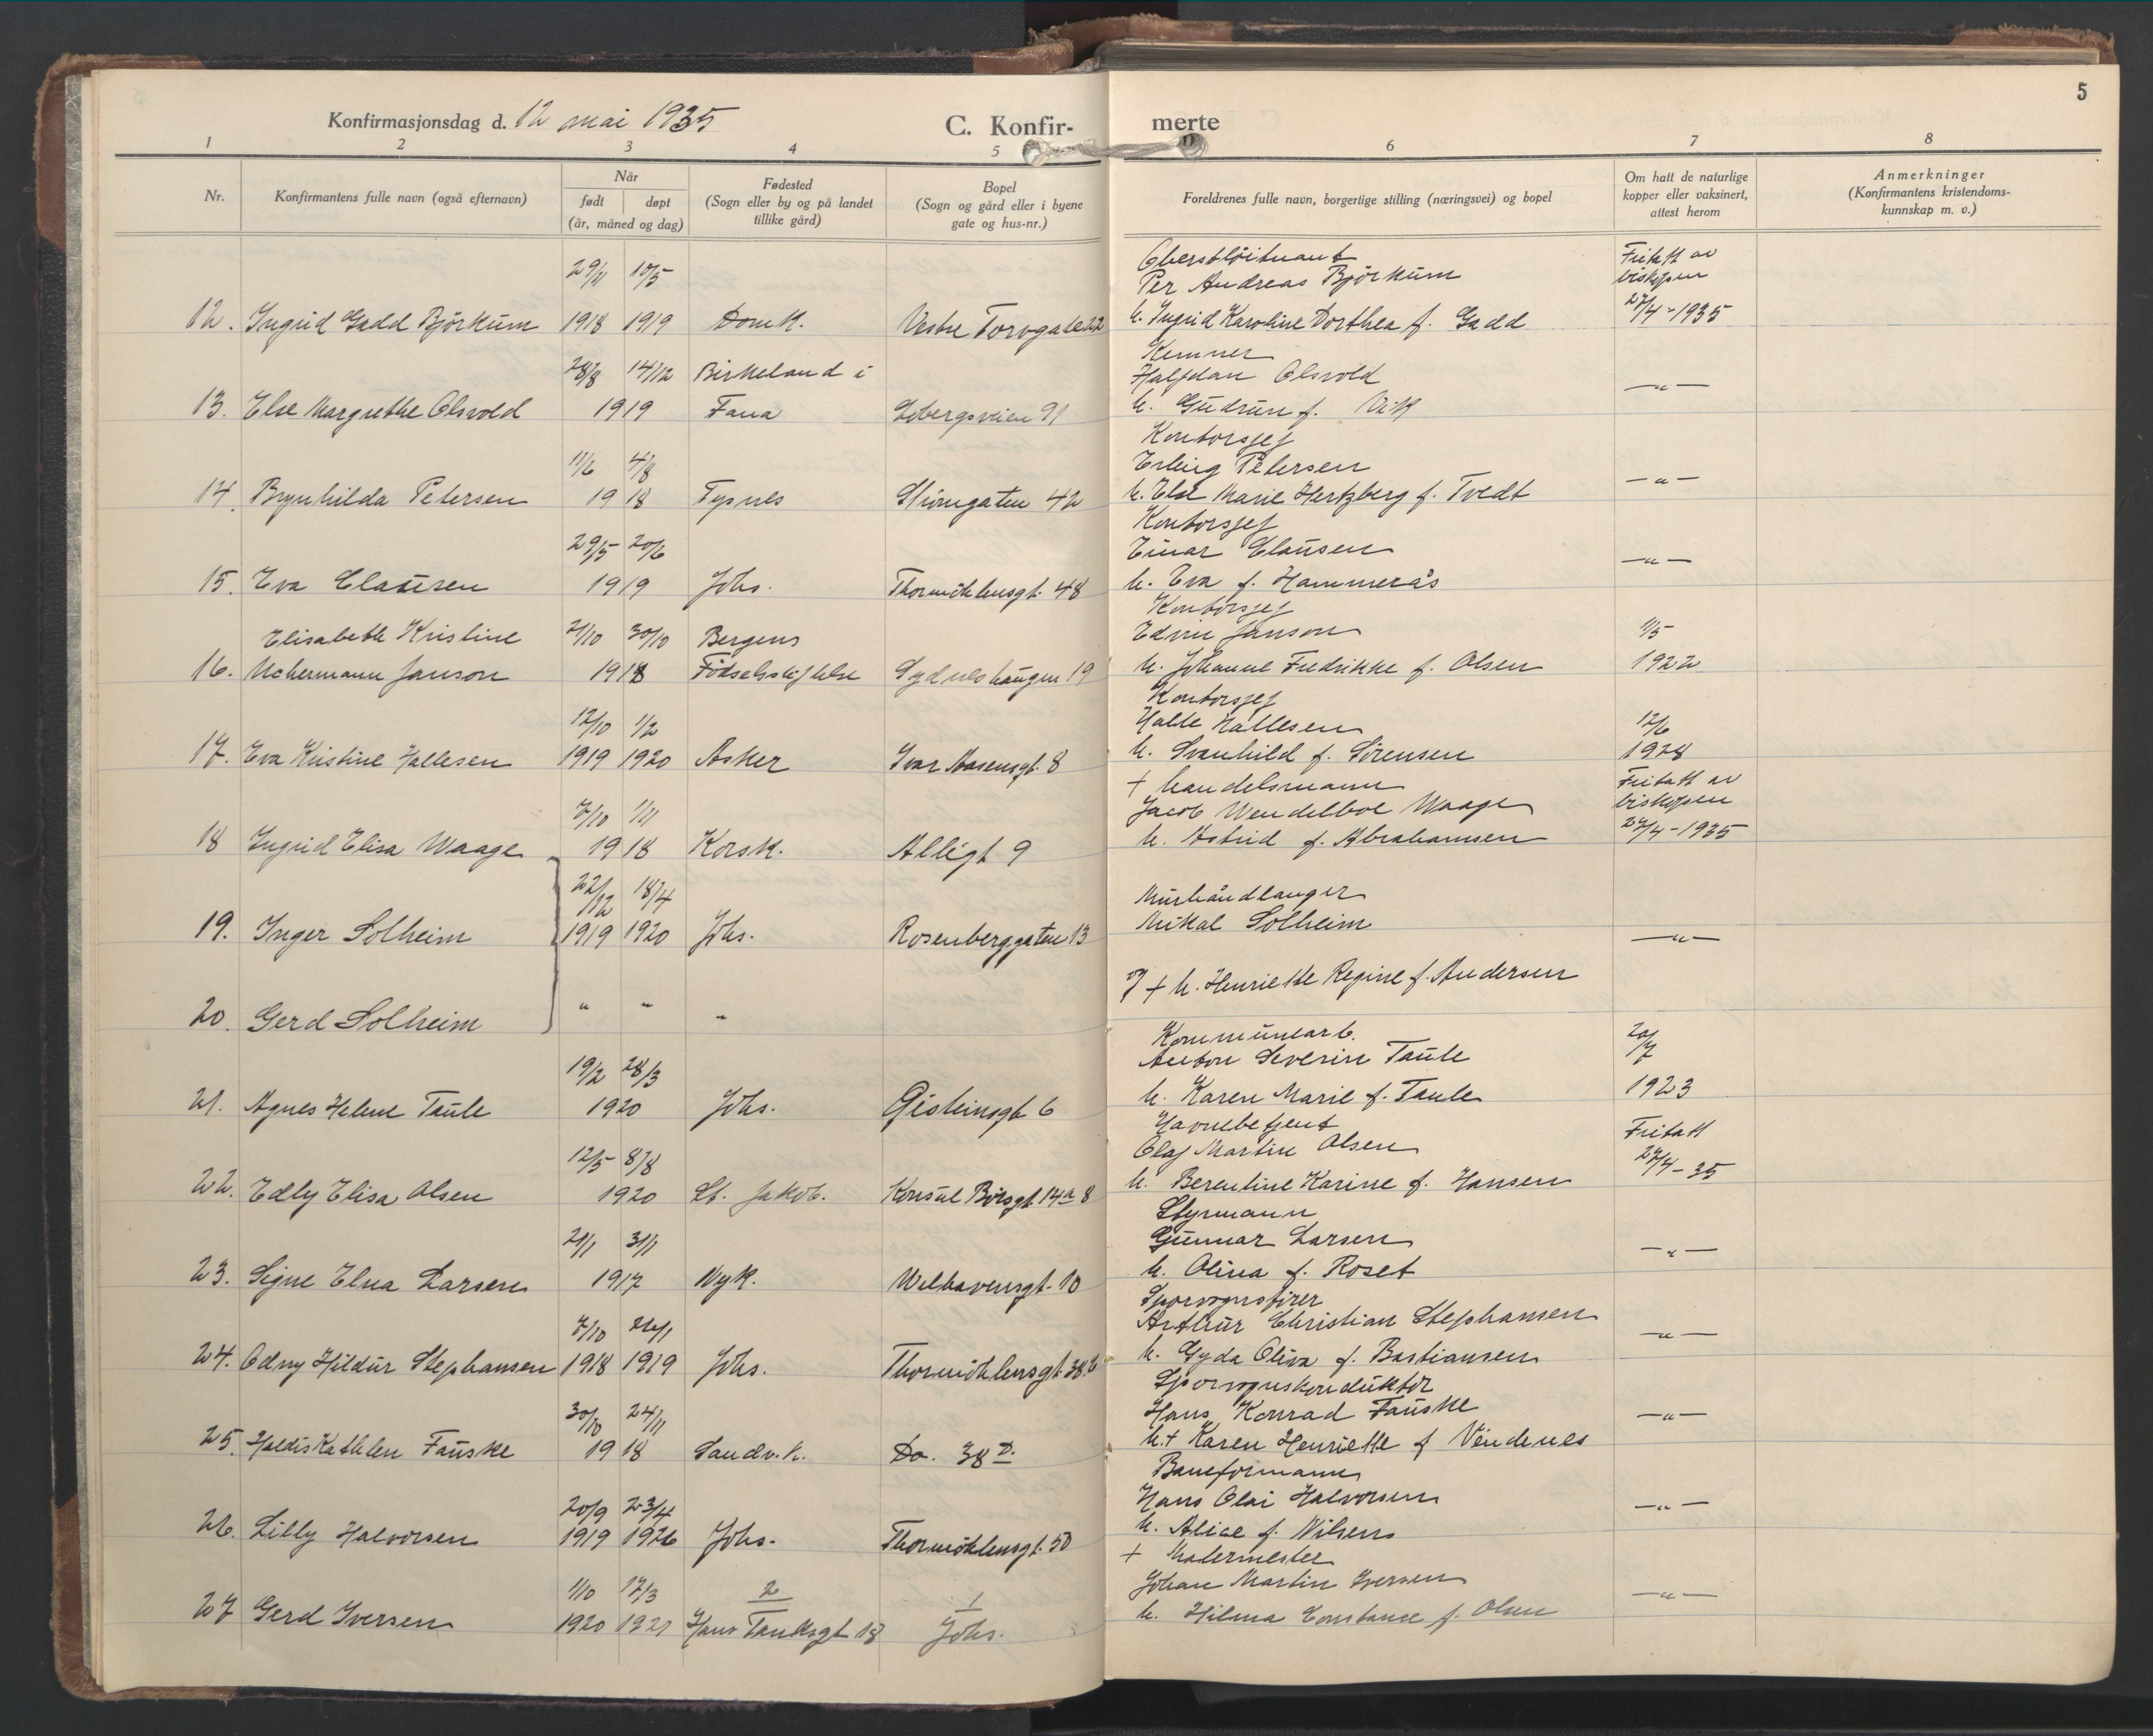 5
Konfirmasjonsdag d. 12 mai 1935
C. Konfir-
merte
1 2 3 4 5 6 7 8
Nr.
Konfirmantens fulle navn (også efternavn)
Når
født døpt
(år, måned og dag)
Fødested
(Sogn eller by og på landet
tillike gård)
Bopel
(Sogn og gård eller i byene
gate og hus-nr.)
Foreldrenes fulle navn, borgerlige stilling (næringsvei) og bopel
Om hatt de naturlige
kopper eller vaksinert,
attest herom
Anmerkninger
(Konfirmantens kristendoms-
kunnskap m. v.)
29/11 10/5 Oberstløitnant Fritatt av
Per Andreas Bjørkum biskopen
12. Ingrid Gadd Bjørkum 1918 1919 Domk. Vestre Torvgate 22 h. Ingrid Karoline Dorthea f. Gadd 27/4-1935
28/8 14/12 Birkeland i Kemner
Halfdan Olsvold —"—
13. Else Margrethe Olsvold 1919 Fana h. Gudrun f. Vik
Kontorsjef
11/6 4/8 Erling Petersen
14. Brynhilda Petersen 1918 Tysnes Strømgaten 42 h. Else Marie Hertzberg f. Tvedt —"—
Kontorsjef
29/5 20/6 Einar Clausen
15. Eva Clausen 1919 Johs. Thormøhlensgt. 48 h. Eva f. Hammerås —"—
Kontorsjef
Elisabeth Kristine 21/10 30/10 Bergens Edvin Janson 11/5
16. Uchermann Janson 1918 Fødselsstiftelse Sydneshaugen 19 h. Johanne Fredrikke f. Olsen 1922
Kontorsjef
12/10 1/2 Halle Hallesen 12/6
17. Eva Kristine Hallesen 1919 1920 Asker Ivar Aasensgt. 8 h. Svanhild f. Sørensen 1928
+ handelsmann Fritatt av
7/10 1/11 Jacob Wendelboe Waage biskopen
18 Ingrid Elisa Waage 1918 Korsk. Allégt 9 h. Astrid f. Abrahamsen 27/4-1935
22/12 18/4 Murhåndlanger
19. Inger Solheim 1919 1920 Johs. Rosenberggaten 13 Mikal Solheim —"—
og + h. Henriette Regine f. Andersen
20. Gerd Solheim " " "
Kommunearb. 20/7
19/2 28/3 Anton Severin Taule
21. Agnes Helene Taule 1920 Johs. Gisteinsgt 6 h. Karen Marie f. Taule 1923
Havnebetjent Fritatt
12/5 8/8 Olaf Martin Olsen
22. Edly Elisa Olsen 1920 St. Jakob. Konsul Børsgt. 14a 8 h. Berentine Karine f. Hansen 27/4-35
Styrmann
21/1 31/1 Gunnar Larsen
23. Signe Elna Larsen 1917 Nyk. Welhavensgt. 10 h. Olina f. Roset —"—
Sporvognsfører
7/10 26/1 Arthur Christian Stephansen
24. Odny Hildur Stephansen 1918 1919 Johs. Thormøhlensgt. 38.b h. Gyda Oliva f. Bastiansen —"—
Sporvognskonduktør
30/10 24/11 Hans Konrad Fauske
25. Haldis Kathleen Fauske 1918 Sandv.k. Do. 38 D. h.+ Karen Henriette f Vendenes —"—
Baneformann
20/9 23/4 Hans Olai Halvorsen
26. Lilly Halvorsen 1919 1926 Johs. Thormøhlensgt. 50 h. Alice f. Nilsen —"—
+ Malermester
1/10 17/3 2 1 Johan Martin Iversen
27 Gerd Iversen 1920 1921 Hans Tanksgt 18 Johs. h. Hilma Constanse f. Olsen —"—